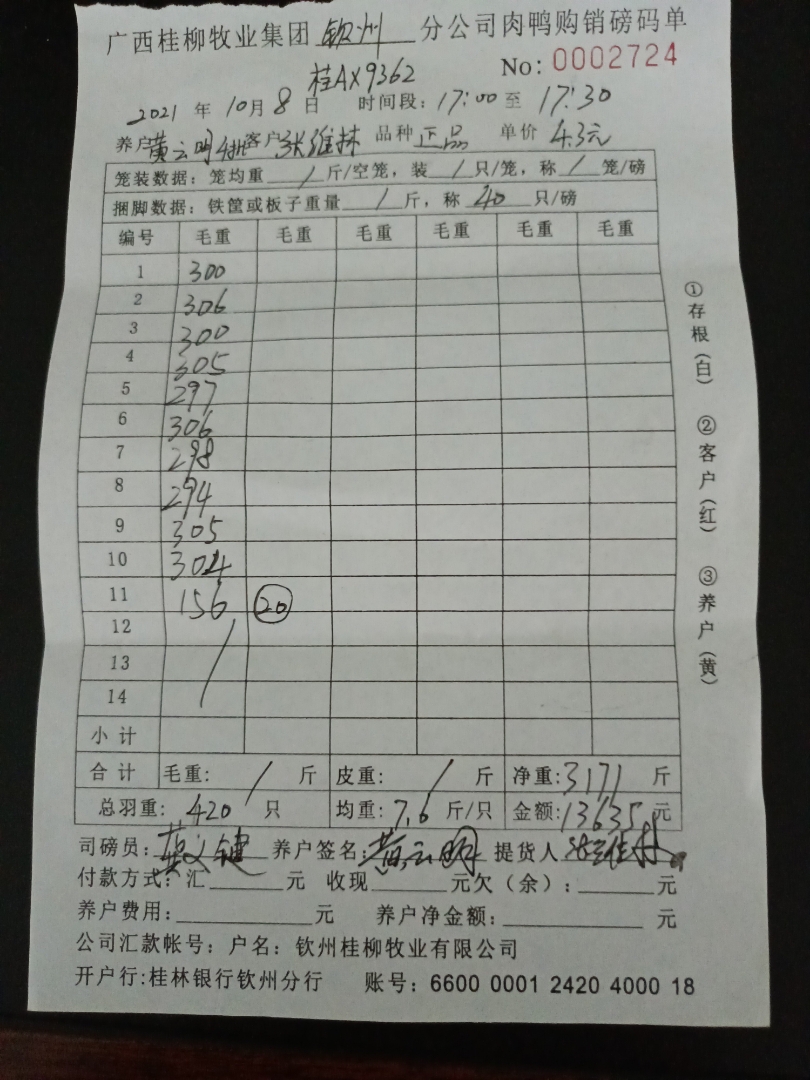 广西桂柳牧业集团 钦州 分公司肉鸭购销磅码单
No: 0002724
桂AX9362
2021 年 10月 8 日 时间段: 17:00 至 17:30
养户黄云明 客户张维林 品种 正品 单价 4.3元
笼装数据: 笼均重 / 斤/空笼, 装 / 只/笼, 称 / 笼/磅
捆脚数据: 铁筐或板子重量 / 斤, 称 40 只/磅
编号 毛重 毛重 毛重 毛重 毛重 毛重
1 300
2 306
3 300
4 305
5 297
6 306
7 298
8 294
9 305
10 304
11 156 20
12 /
13
14
小计
合计 毛重: / 斤 皮重: / 斤 净重: 3171 斤
总羽重: 420 只 均重: 7.6 斤/只 金额: 13635 元
司磅员: 养户签名: 黄云明 提货人 张维林
付款方式: 汇 元 收现 元欠(余): 元
养户费用: 元 养户净金额: 元
公司汇款帐号: 户名: 钦州桂柳牧业有限公司
开户行:桂林银行钦州分行 账号: 6600 0001 2420 4000 18
①存根(白) ②客户(红) ③养户(黄)